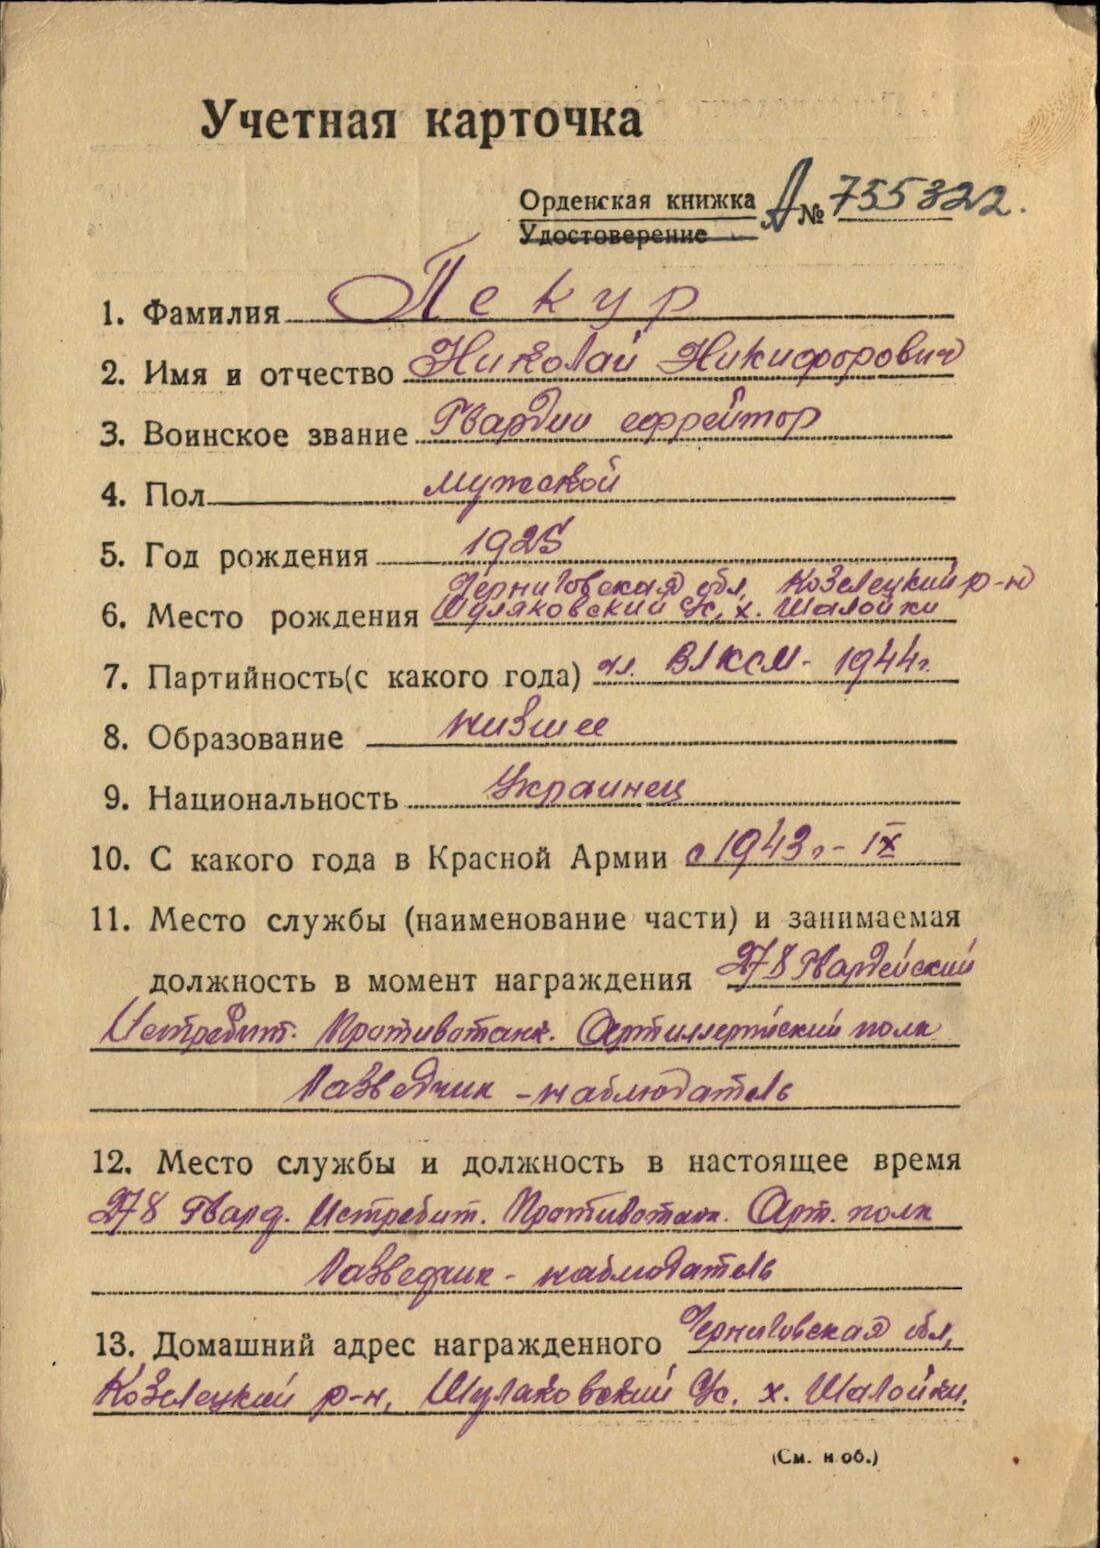 Учетная карточка
Орденская книжка А № 755322.
Удостоверение
1. Фамилия Пекур
2. Имя и отчество Николай Никифорович
3. Воинское звание Гвардии ефрейтор
4. Пол мужской
5. Год рождения 1925
Черниговская обл, Козелецкий р-н
6. Место рождения Шуляковский с/с, х. Шалойки
7. Партийность (с какого года) чл. ВЛКСМ - 1944г.
8. Образование низшее
9. Национальность Украинец
10. С какого года в Красной Армии с 1943г - IX
11. Место службы (наименование части) и занимаемая
должность в момент награждения 278 Гвардейский
Истребит. Противотанк. Артиллерийский полк
Разведчик - наблюдатель
12. Место службы и должность в настоящее время
278 Гвард. Истребит. Противотанк. Арт. полк
Разведчик - наблюдатель
13. Домашний адрес награжденного Черниговская обл,
Козелецкий р-н, Шуляковский с/с. х. Шалойки.
(См. н об.)